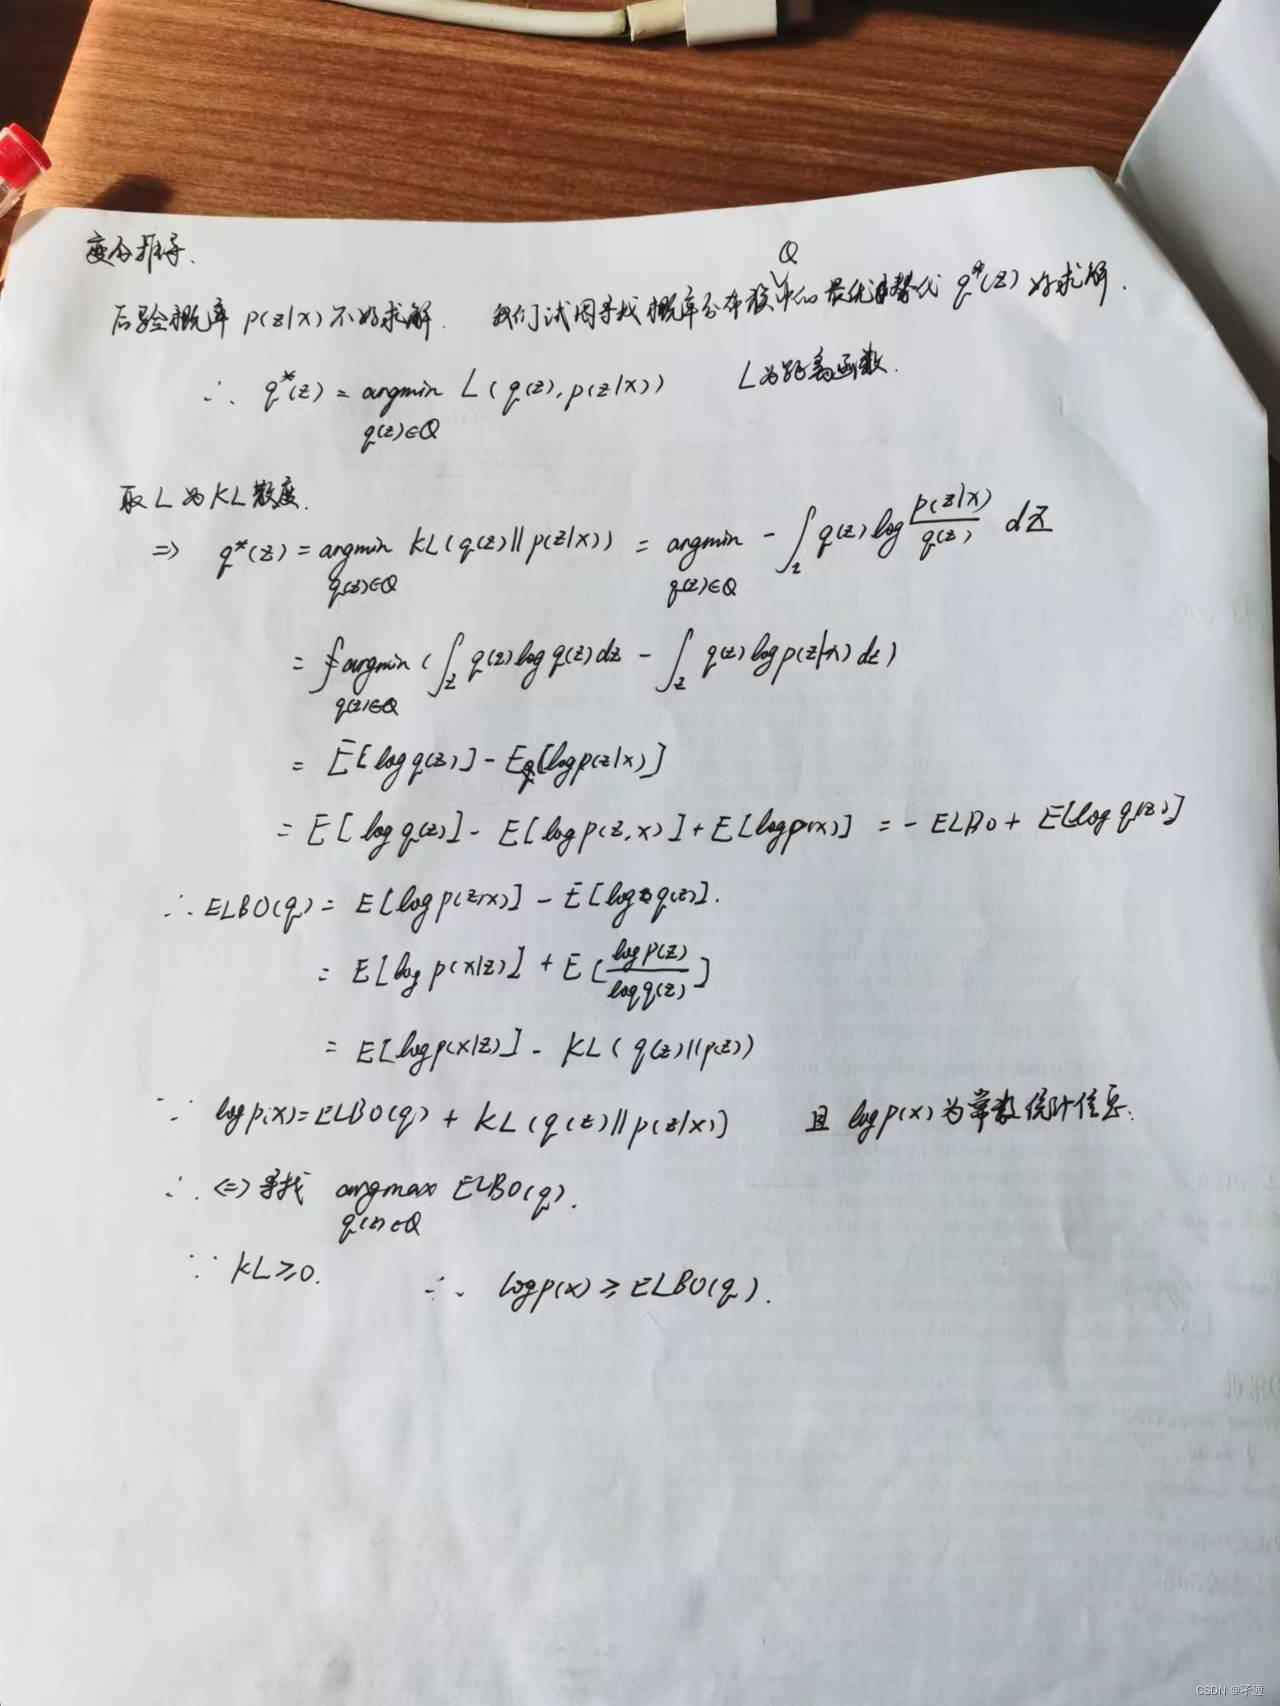 变分推导.
Q
后验概率 p(z|x) 不好求解. 我们试图寻找概率分布族中的最优替代 q*(z) 好求解.
∴ q*(z) = argmin L(q(z), p(z|x)) L为距离函数.
q(z)∈Q
取L为KL散度.
⇒ q*(z) = argmin KL(q(z)||p(z|x)) = argmin -∫_z q(z) log p(z|x)/q(z) dz
q(z)∈Q q(z)∈Q
= argmin (∫_z q(z) log q(z) dz - ∫_z q(z) log p(z|x) dz)
q(z)∈Q
= E[log q(z)] - E_q[log p(z|x)]
= E[log q(z)] - E[log p(z,x)] + E[log p(x)] = -ELBO + E[log q(z)]
∴ ELBO(q) = E[log p(z,x)] - E[log q(z)].
= E[log p(x|z)] + E[log p(z)/log q(z)]
= E[log p(x|z)] - KL(q(z)||p(z))
∵ log p(x) = ELBO(q) + KL(q(z)||p(z|x)] 且 log p(x) 为常数统计信息.
∴ <=> 寻找 argmax ELBO(q).
q(z)∈Q
∵ KL≥0. ∴ log p(x) ≥ ELBO(q).
CSDN @子渡